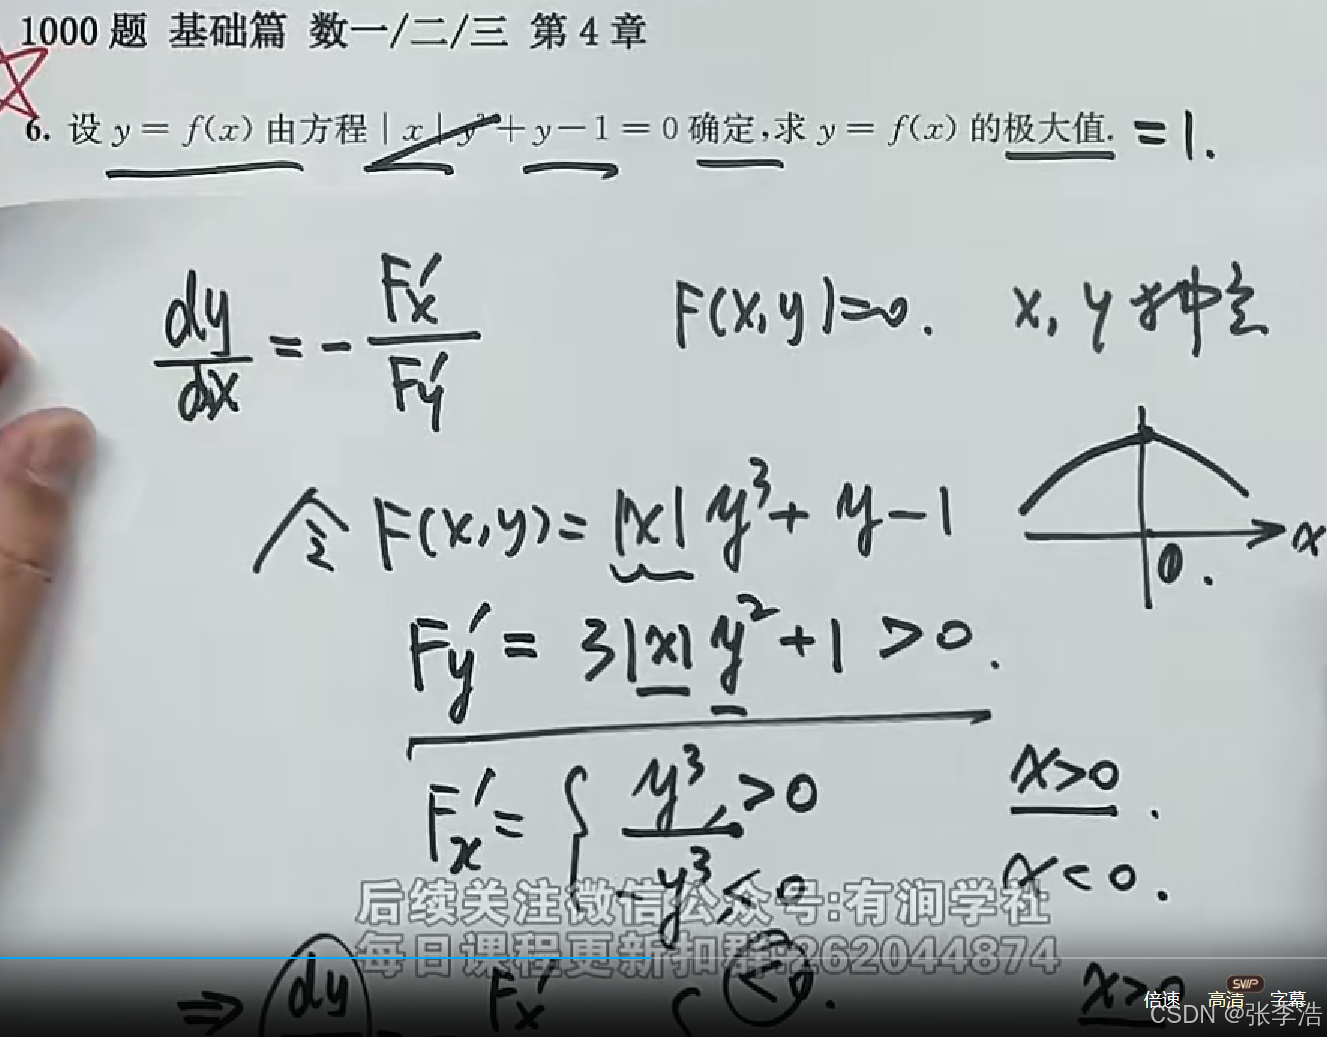 1000 题 基础篇 数一/二/三 第 4 章
6. 设 y = f(x) 由方程 | x | y³ + y − 1 = 0 确定,求 y = f(x) 的极大值. = 1.
dy/dx = − F'x/F'y F(x,y)=0. x, y
令 F(x,y) = |x| y³ + y − 1
x
0.
F'y = 3|x| y² + 1 > 0.
F'x = { y³ > 0 x>0.
−y³ < 0 x<0.
后续关注微信公众号:有润学社
每日课程更新扣群:262044874
⇒ dy F'x { <0. x>0
SVIP
倍速 高清 字幕
CSDN @张李浩